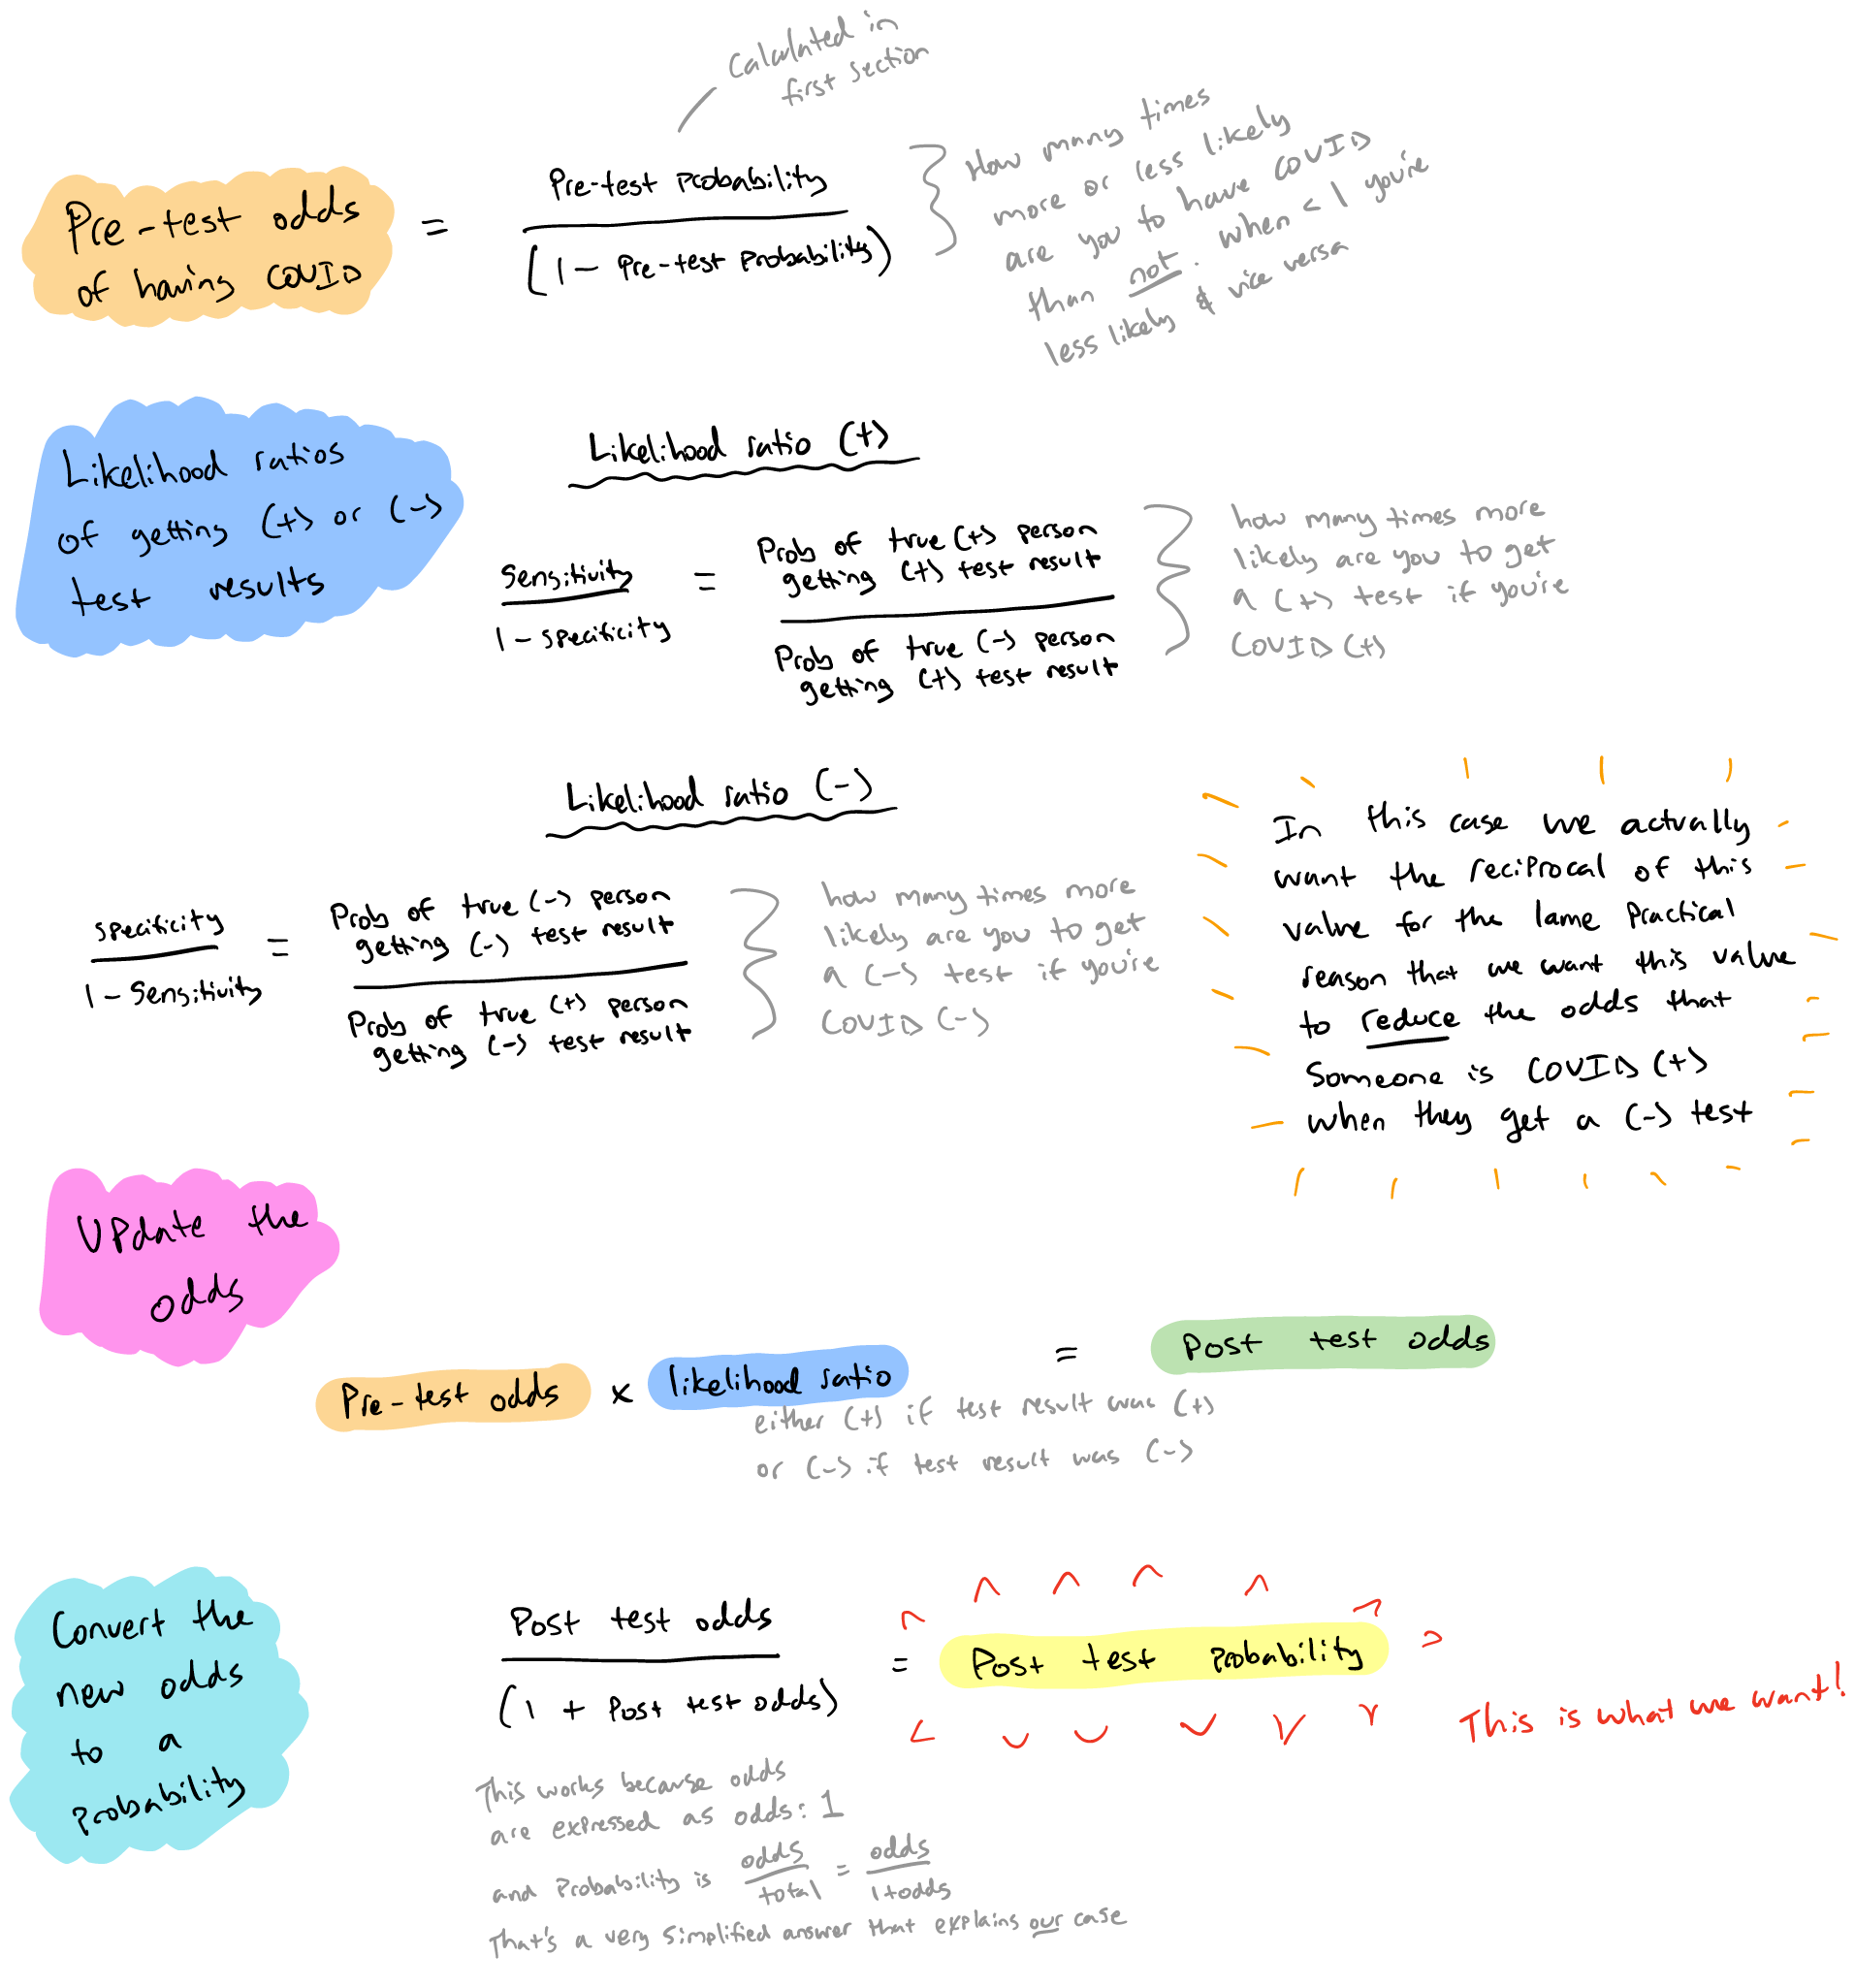 Calculated in
first section
Pre-test odds
of having COVID
=
Pre-test Probability
(1 - Pre-test Probability)
How many times
more or less likely
are you to have COVID
than not. when < 1 you're
less likely & vice versa
Likelihood ratios
of getting (+) or (-)
test results
Likelihood ratio (+)
Sensitivity
1 - specificity
=
Prob of true (+) person
getting (+) test result
Prob of true (-) person
getting (+) test result
how many times more
likely are you to get
a (+) test if you're
COVID (+)
Likelihood ratio (-)
specificity
1 - Sensitivity
=
Prob of true (-) person
getting (-) test result
Prob of true (+) person
getting (-) test result
how many times more
likely are you to get
a (-) test if you're
COVID (-)
In this case we actually
want the reciprocal of this
value for the lame Practical
reason that we want this value
to reduce the odds that
Someone is COVID (+)
when they get a (-) test
Update the
odds
Pre-test odds x likelihood ratio = Post test odds
either (+) if test result was (+)
or (-) if test result was (-)
Convert the
new odds
to a
probability
Post test odds
(1 + Post test odds)
= Post test Probability
This is what we want!
This works because odds
are expressed as odds: 1
and Probability is odds/total = odds/1+odds
That's a very simplified answer that explains our case